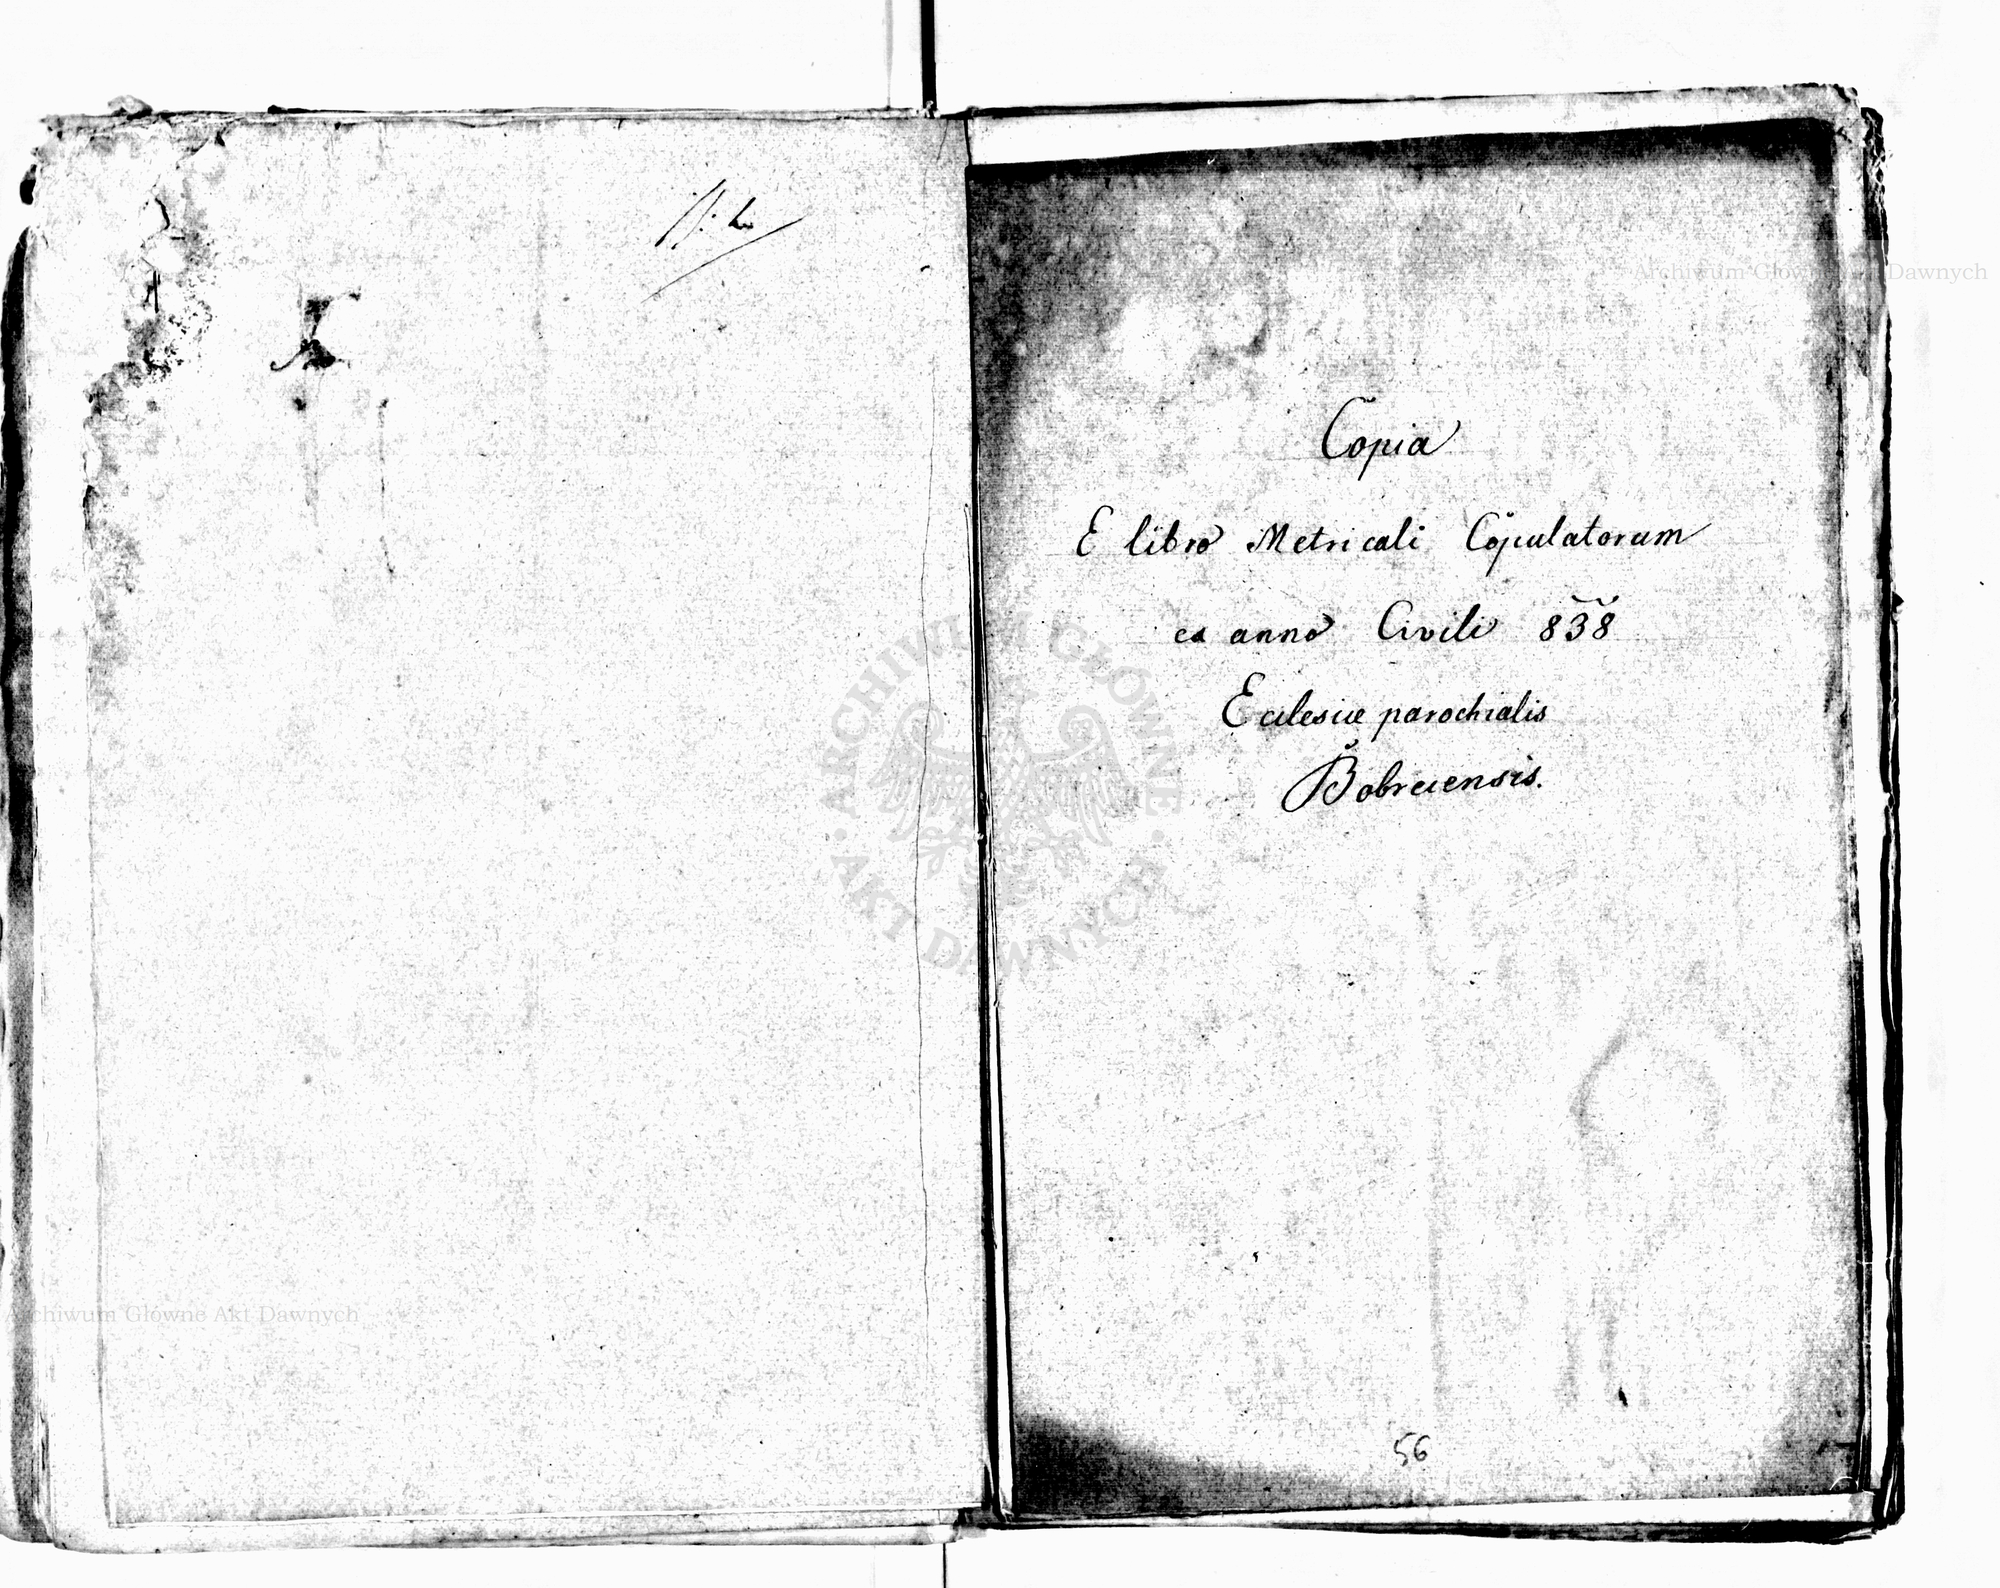 Copia
E libro Metricali Copulatorum
ex anno Civili 838
Ecclesiæ parochialis
Bobrcensis.
56
Archiwum Główne Akt Dawnych
ARCHIWUM GŁÓWNE AKT DAWNYCH
Archiwum Główne Akt Dawnych